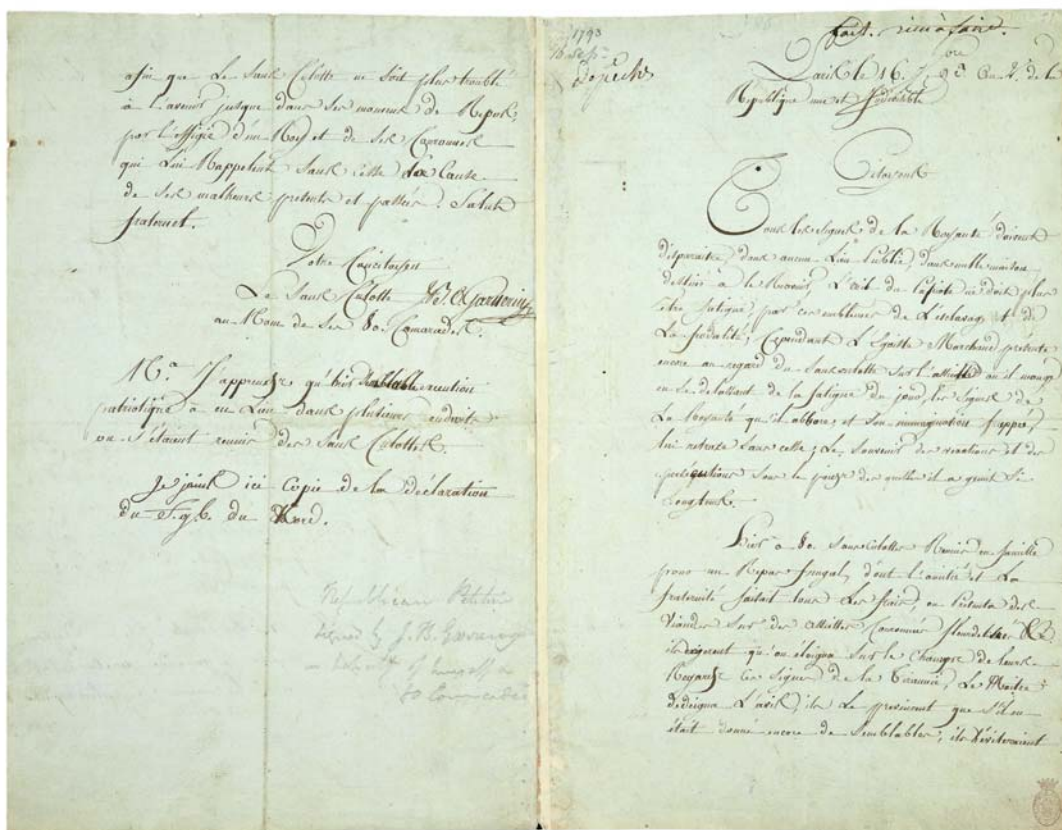 afin que Le Sans Culotte ne Soit plus troublé
à l'avenir jusque dans ses momens de Repos,
par l'effigie d'un Roy et de ses Couronnes
qui Lui Rappelent Sans Cesse La Cause
de Ses malheurs présents et passés. Salut
fraternel.
Votre Concitoyen
Le Sans Culotte J. B. O. Garnerin
au Nom de Ses 80. Camarades.
Na. J'apprends qu'une semblable execution
patriotique a eu Lieu dans plusieurs endroits
ou s'étaient reunis des Sans Culottes.
Je joins ici Copie de la déclaration
du du Nord.
Republican Petition
signed by J. B. Garnering
— behalf of himself &
80 Comrades
1793
16 Sep.
Dépechs
fait. rien à faire.
Paris le 16. 7bre 93 An 2. de la
Republique une et Indivisible
Citoyens
Tous les Signes de la Royauté doivent
disparaitre, dans aucun Lieu Public, dans nulle maison
destinés à le Recevoir, L'œil du Patriote ne doit plus
être fatigué, par ces emblemes de L'esclavage et de
La féodalité; Cependant L'Egoiste Marchand, présente
encore au regard du Sansculotte Sur l'assiette où il mange
en Se delassant de la fatigue du jour, les Signes de
La Royauté qu'il abhore, et Son immagination frappé,
lui retrace Sans cesse, Le Souvenir des vexations et des
persécutions Sous le poids des quelles il a gemit Si
Longtems.
Hier a 80. Sansculottes Reunis en famille
pour un Repas frugal, dont l'amitié et La
fraternité faisait tous Les frais, on présenta des
Viandes Sur des assiettes, Couronnées fleurdelisées &c
ils exigerent qu'on éloigna Sur le champs de leurs
Regards Ces Signes de la Tirannie, Le Maitre
dedeigna L'avis, ils Le previnrent que S'il en
était donné encore de Semblables, ils